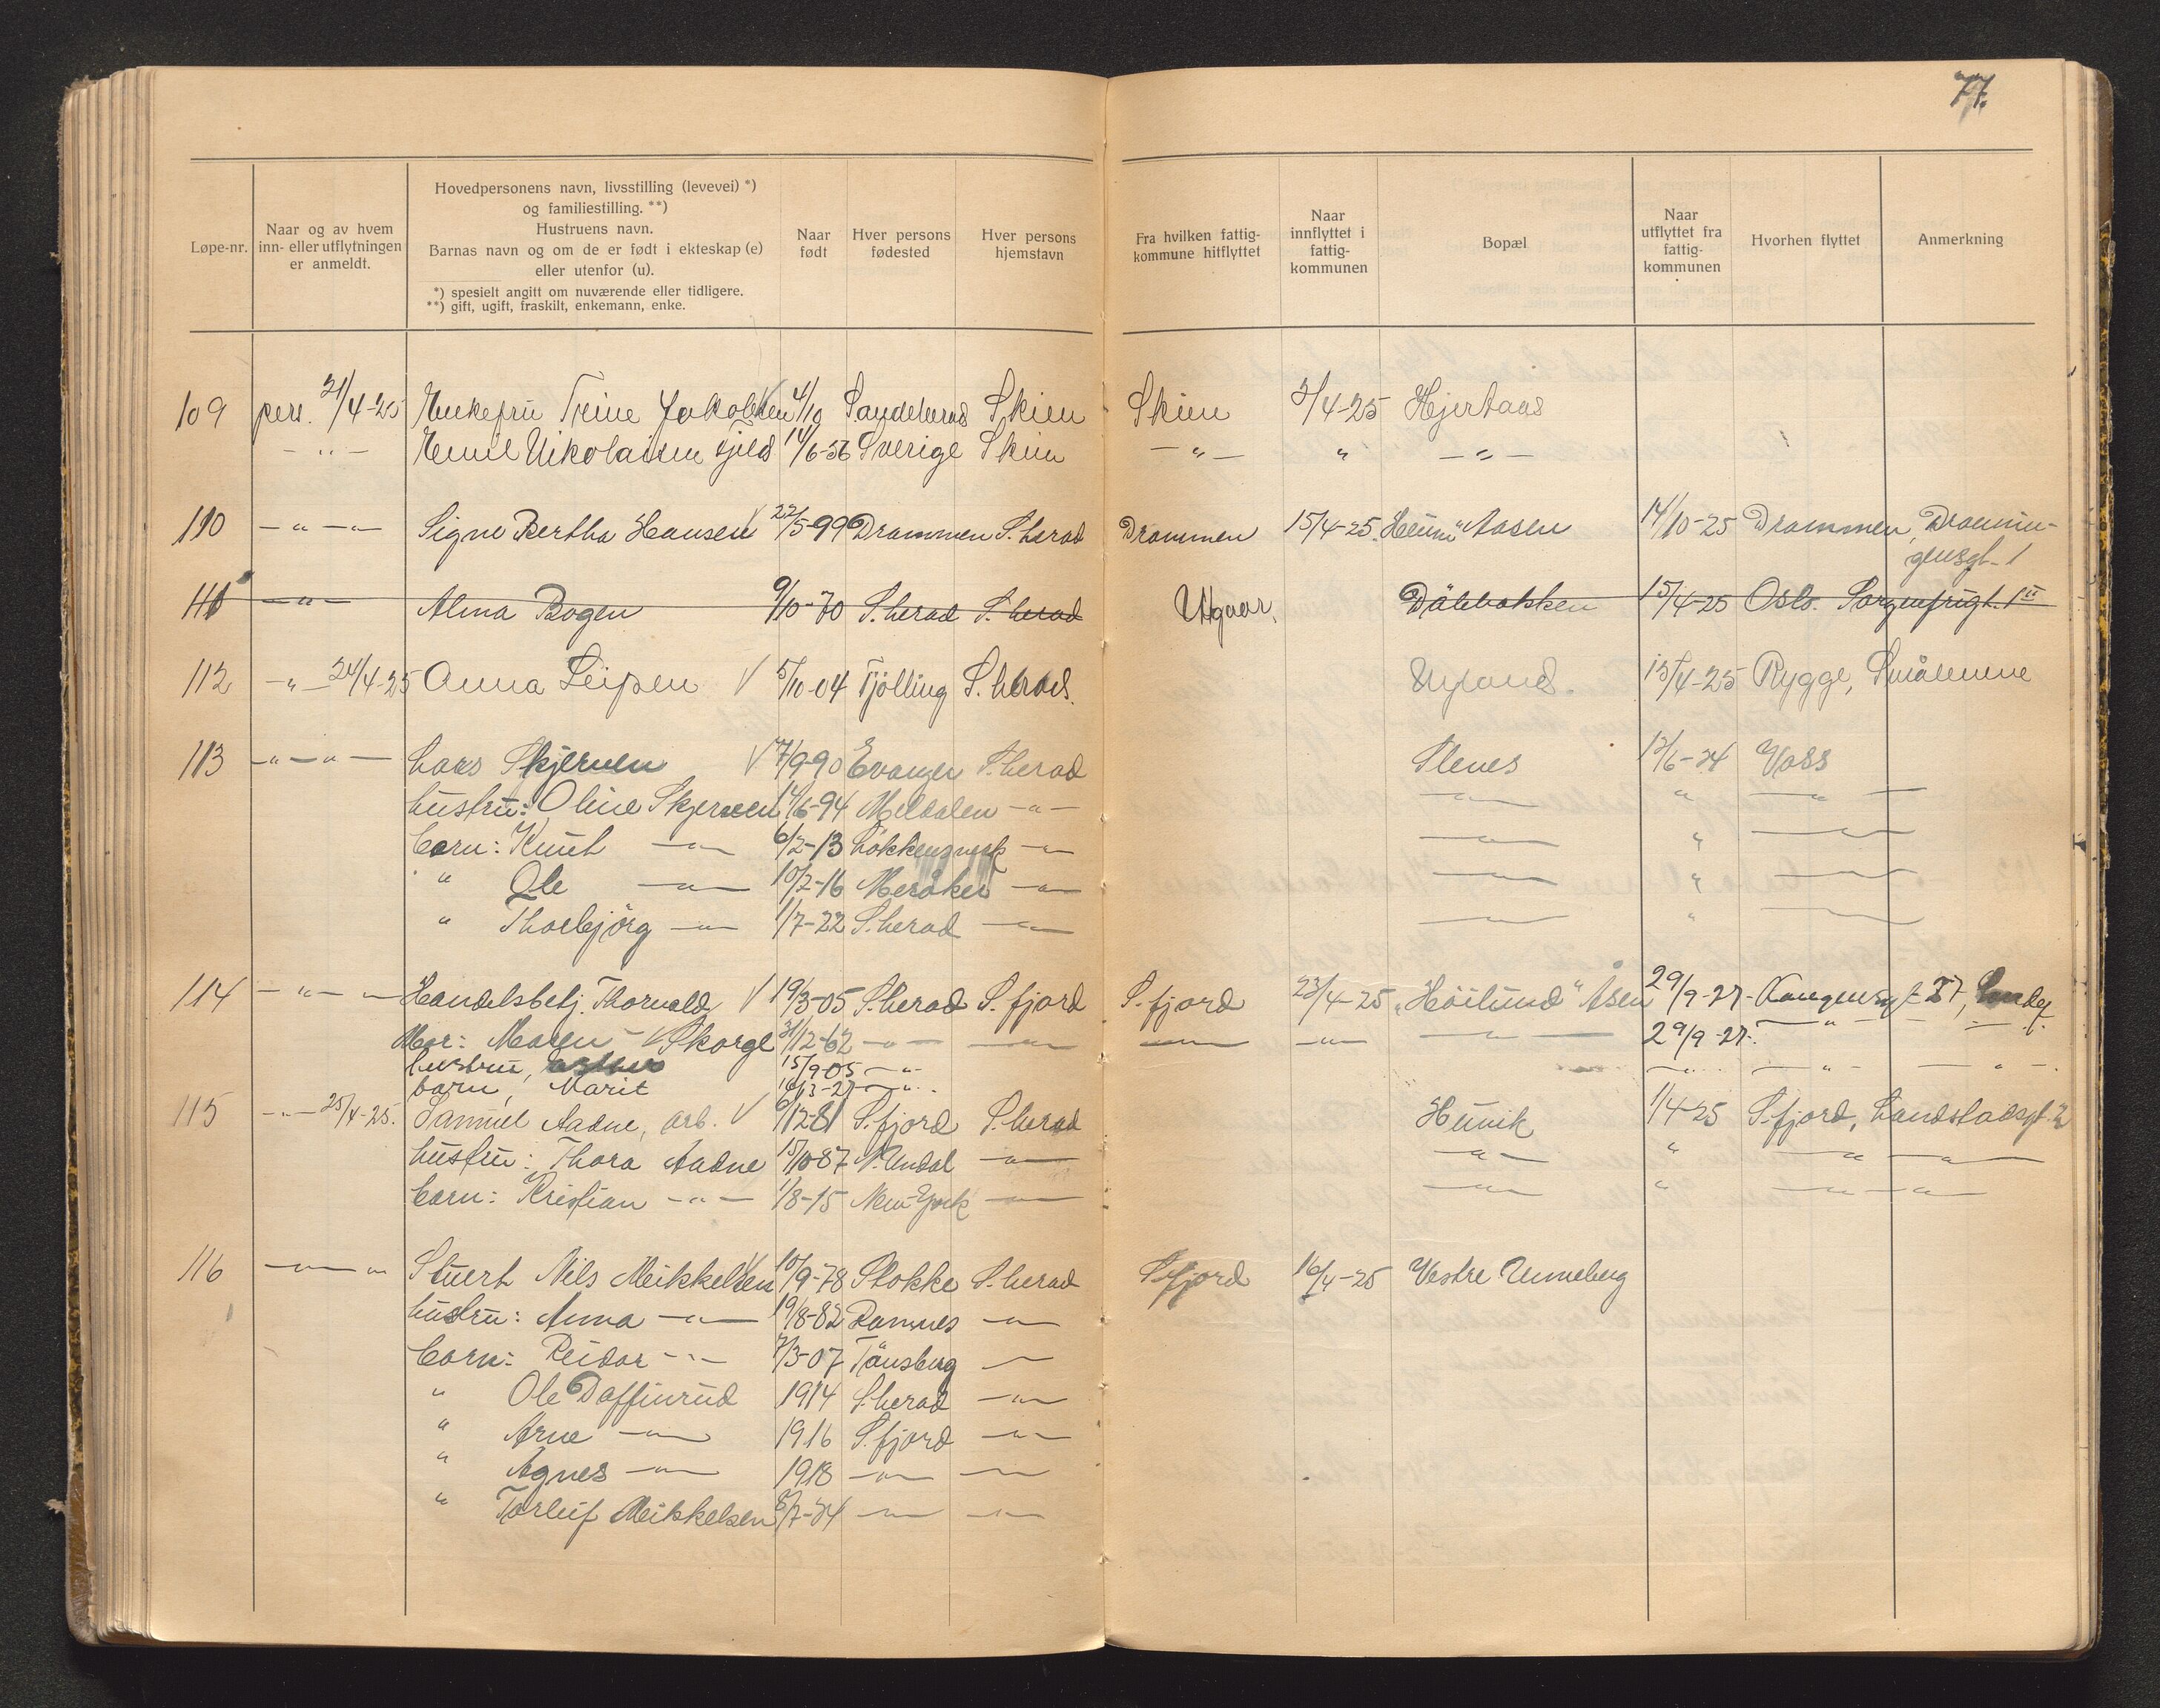 77.
Løpe-nr.
Naar og av hvem
inn- eller utflytningen
er anmeldt.
Hovedpersonens navn, livsstilling (levevei) *)
og familiestilling. **)
Hustruens navn.
Barnas navn og om de er født i ekteskap (e)
eller utenfor (u).
*) spesielt angitt om nuværende eller tidligere.
**) gift, ugift, fraskilt, enkemann, enke.
Naar
født
Hver persons
fødested
Hver persons
hjemstavn
Fra hvilken fattig-
kommune hitflyttet
Naar
innflyttet i
fattig-
kommunen
Bopæl
Naar
utflyttet fra
fattig-
kommunen
Hvorhen flyttet
Anmerkning
109 pers. 21/4-25 Enkefru Trine Jakobsen 4/10 Sandeherad Skien Skien 2/4-25 Hjertaas
-"- Emil Nikolaisen Fjeld 14/6-56 Sverige Skien -"- " -"-
110 -"- Signe Bertha Hansen 22/5-99 Drammen S.herad Drammen 15/4-25 "Heim" Aasen 14/10-25 Drammen,
gensgt. 1
111 -"- Alma Bogen 9/10-70 S.herad S.herad Utgaar. Dålebakken 15/4-25 Oslo. Sorgenfrigt. 1 II
112 -"- 24/4-25 Anna Leipen 5/10-04 Tjölling S.herad. Nyland. 15/4-25 Rygge, Smålenene
113 -"-"- Lars Skjerven 7/9-90 Evanger S.herad Stenes 12/6-24 Voss
hustru: Oline Skjerven 14/6-94 Meldalen -"- -"- " -"-
barn: Knut -"- 6/2-13 Lökkensverk -"- -"- " -"-
" Ole -"- 10/2-16 Meråker -"- -"- " -"-
" Thorbjörg -"- 1/7-22 S.herad -"- -"- " -"-
114 -"- Handelsbetj. Thorvald 19/3-05 S.herad S.fjord S.fjord 23/4-25 "Höilund" Åsen 29/9-27
Mor: Maren -"- Skorge 31/12-62 -"- -"- -"- -"- -"- 29/9-27. -"-
hustru, 15/9-05 -"- -"- -"- -"-
barn, Marit -"-
115 -"- 25/4-25. Samuel Aadne, arb. 6/12-81 S.fjord S.herad Hunik 1/4-25 S.fjord, Landstadsgt. 2
hustru: Thora Aadne 15/10-87 N.Undal -"- -"- " -"- -"-
barn: Kristian -"- 1/8-15 New-York -"- -"- " -"- -"-
116 -"- Stuert Nils Mikkelsen 10/9-78 Stokke S.herad S.fjord 16/4-25 Vestre Unneberg
hustru: Anna -"- 19/8-82 Ramnes -"-
barn: Reidar -"- 7/3-07 Tönsberg -"-
" Ole Daffinrud 1914 S.herad -"-
" Arne -"- 1916 S.fjord -"-
" Agnes -"- 1918 -"- -"-
" Torleif Mikkelsen 8/7-24 -"- -"-